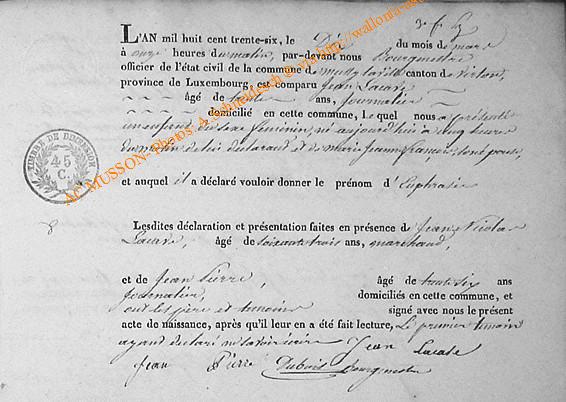 3e f
L'AN mil huit cent trente-six, le Dix du mois de mars
à onze heures du matin, par-devant nous Bourgmestre
officier de l'état civil de la commune de mussy la ville canton de virton,
province de Luxembourg, est comparu Jean Lacave
âgé de trente ans, journalier
domicilié en cette commune, Lequel nous a présenté
un enfant du sexe féminin, né aujourd'hui à cinq heures
du matin de lui déclarant et de marie jeanne françois, son épouse,
et auquel il a déclaré vouloir donner le prénom d'Euphrasie
8 Lesdites déclaration et présentation faites en présence de Jean Nicolas
Lacave, âgé de soixante trois ans, marchand,
et de Jean Pierre, âgé de trente six ans
journalier, domiciliés en cette commune, et
ont les père et témoins signé avec nous le présent
acte de naissance, après qu'il leur en a été fait lecture, Le premier témoin
ayant déclaré ne savoir écrire
Jean Lacave
Jean Pierre Dubois Bourgmestre
TIMBRE DE DIMENSION
45
C.
AC MUSSON- Photos A. Schneidesch © via http://wallonica